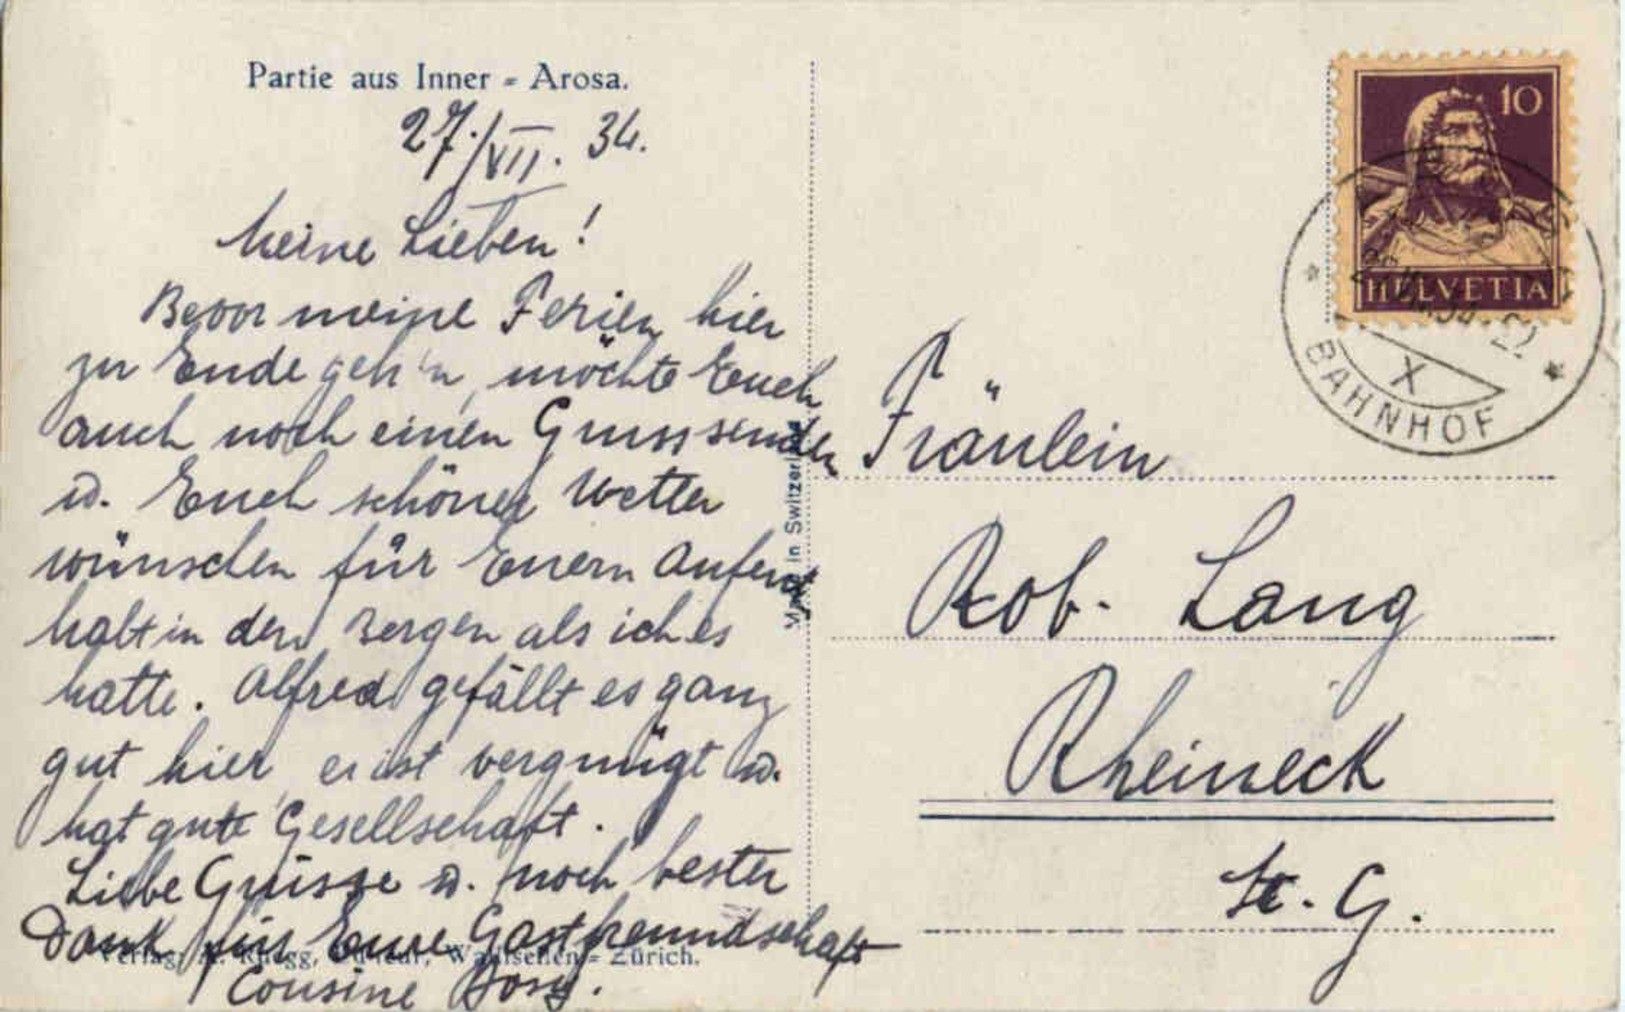 Partie aus Inner = Arosa.
27./VII. 34.
Meine Lieben!
Bevor meine Ferien hier
zu Ende geh'n, möchte Euch
auch noch einen Gruss senden
u. Euch schöner Wetter
wünschen für Euern Aufent
halt in den Bergen als ich es
hatte. Alfred gefällt es ganz
gut hier, er ist vergnügt u.
hat gute Gesellschaft.
Liebe Grüsse u. noch besten
Dank für Eure Gastfreundschaft
Cousine
Verlag, Wädenswil = Zürich.
Made in Switzerland
10
HELVETIA
X
BAHNHOF
Fräulein
Rob. Lang
Rheineck
St. G.